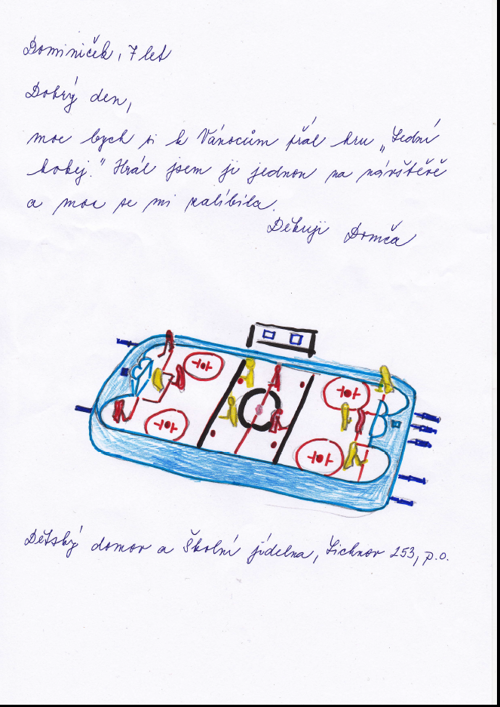 Dominiček, 7 let
Dobrý den,
moc bych si k Vánocům přál hru „Lední
hokej." Hrál jsem ji jednou na návštěvě
a moc se mi zalíbila.
Děkuji Domča
Dětský domov a Školní jídelna, Lichnov 253, p.o.